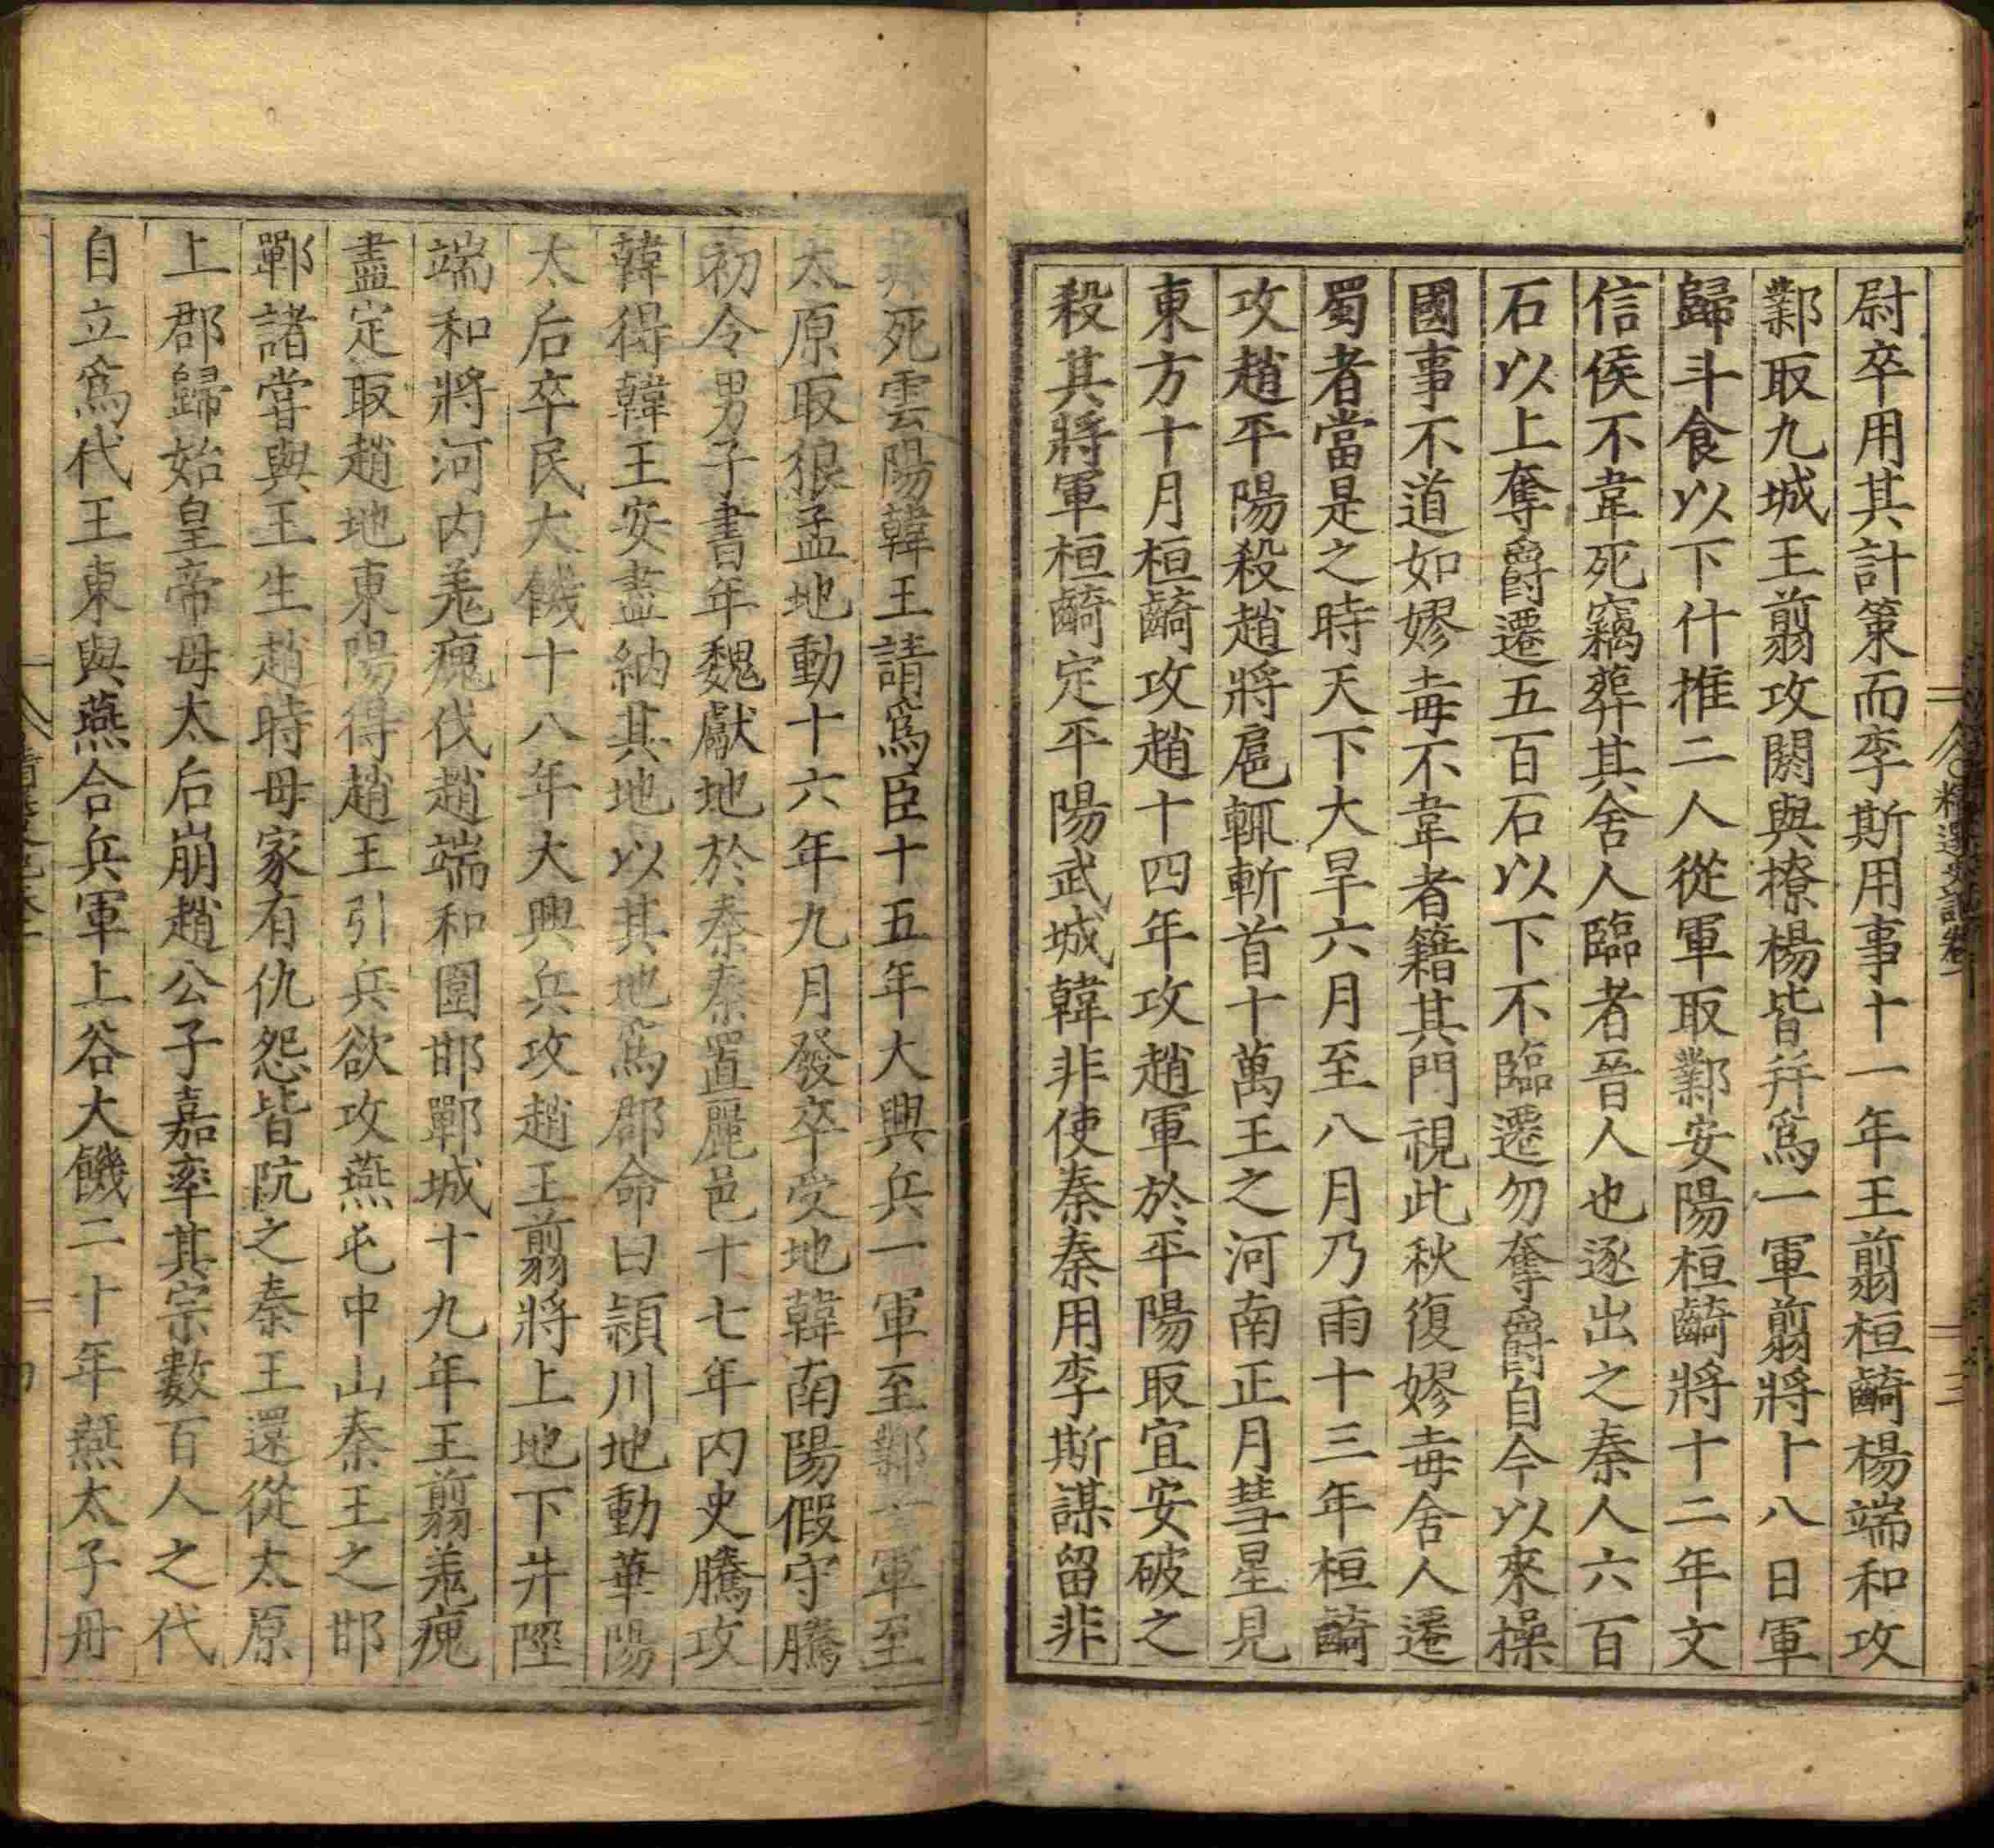 尉卒用其計策而李斯用事十一年王翦桓齮楊端和攻
鄴取九城王翦攻閼與橑楊皆幷爲一軍翦將十八日軍
歸斗食以下什推二人從軍取鄴安陽桓齮將十二年文
信侯不韋死竊葬其舍人臨者晉人也逐出之秦人六百
石以上奪爵遷五百石以下不臨遷勿奪爵自今以來操
國事不道如嫪毐不韋者籍其門視此秋復嫪毐舍人遷
蜀者當是之時天下大旱六月至八月乃雨十三年桓齮
攻趙平陽殺趙將扈輒斬首十萬王之河南正月彗星見
東方十月桓齮攻趙十四年攻趙軍於平陽取宜安破之
殺其將軍桓齮定平陽武城韓非使秦秦用李斯謀留非
非死雲陽韓王請爲臣十五年大興兵一軍至鄴一軍至
太原取狼孟地動十六年九月發卒受地韓南陽假守騰
初令男子書年魏獻地於秦秦置麗邑十七年內史騰攻
韓得韓王安盡納其地以其地爲郡命曰潁川地動華陽
太后卒民大饑十八年大興兵攻趙王翦將上地下井陘
端和將河內羌瘣伐趙端和圍邯鄲城十九年王翦羌瘣
盡定取趙地東陽得趙王引兵欲攻燕屯中山秦王之邯
鄲諸嘗與王生趙時母家有仇怨皆阬之秦王還從太原
上郡歸始皇帝母太后崩趙公子嘉率其宗數百人之代
自立爲代王東與燕合兵軍上谷大饑二十年燕太子丹